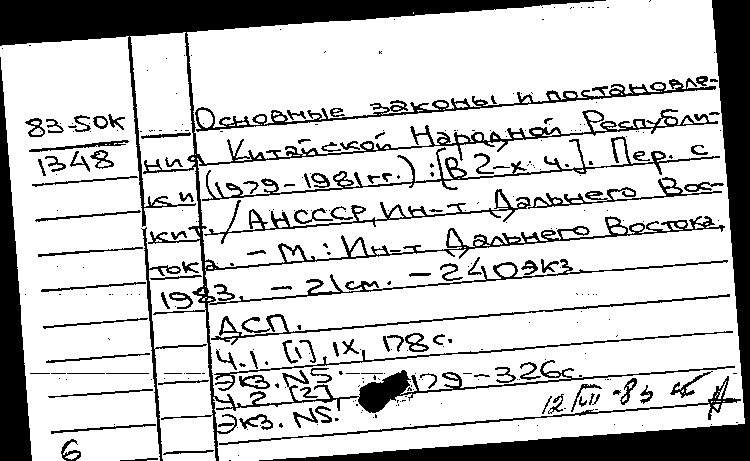 83-50К
1348
Основные законы и постановле-
ния Китайской Народной Республи-
ки (1979-1981гг.) : [В 2-х ч.]. Пер. с
кит. / АНСССР, Ин-т Дальнего Вос-
тока. - М. : Ин-т Дальнего Востока,
1983. - 21см. - 240экз.
ДСП.
Ч.1. [1], IX, 178с.
Экз. №5.
Ч.2. [2], 179-326с.
Экз. №5!
-83
6